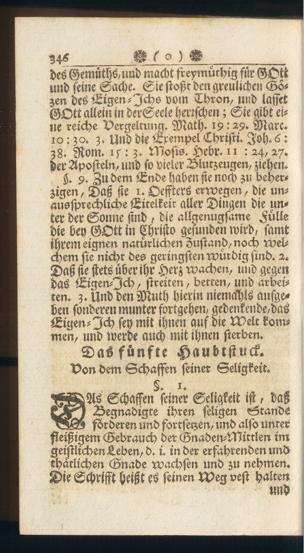 346 ❀ ( o ) ❀
des Gemüths, und macht freymüthig für GOtt
und seine Sache. Sie stoßt den greulichen Gö-
zen des Eigen-Ichs vom Thron, und lasset
GOtt allein in der Seele herrschen; Sie gibt ei-
ne reiche Vergeltung. Math. 19:29. Marc.
10:30. 3. Und die Exempel Christi. Joh. 6:
38. Rom. 15:3. Mosis. Hebr. 11:24, 27.
der Aposteln, und so vieler Blutzeugen, ziehen.
§. 9. Zu dem Ende haben sie noch zu beher-
zigen, Daß sie 1. Oeffters erwegen, die un-
aussprechliche Eitelkeit aller Dingen die un-
ter der Sonne sind, die allgenugsame Fülle
die bey GOtt in Christo gefunden wird, samt
ihrem eignen natürlichen Zustand, noch wel-
chem sie nicht des geringsten würdig sind. 2.
Daß sie stets über ihr Herz wachen, und gegen
das Eigen-Ich, streiten, betten, und arbei-
ten. 3. Und den Muth hierin niemahls aufge-
ben sonderen munter fortgehen, gedenkende, das
Eigen-Ich sey mit ihnen auf die Welt kom-
men, und werde auch mit ihnen sterben.
Das fünfte Haubtstuck.
Von dem Schaffen seiner Seligkeit.
§. 1.
DAs Schaffen seiner Seligkeit ist, daß
Begnadigte ihren seligen Stande
förderen und fortsezen, und also unter
fleißigem Gebrauch der Gnaden-Mittlen im
geistlichen Leben, d. i. in der erfahrenden und
thätlichen Gnade wachsen und zu nehmen.
Die Schrifft heißt es seinen Weg vest halten
und